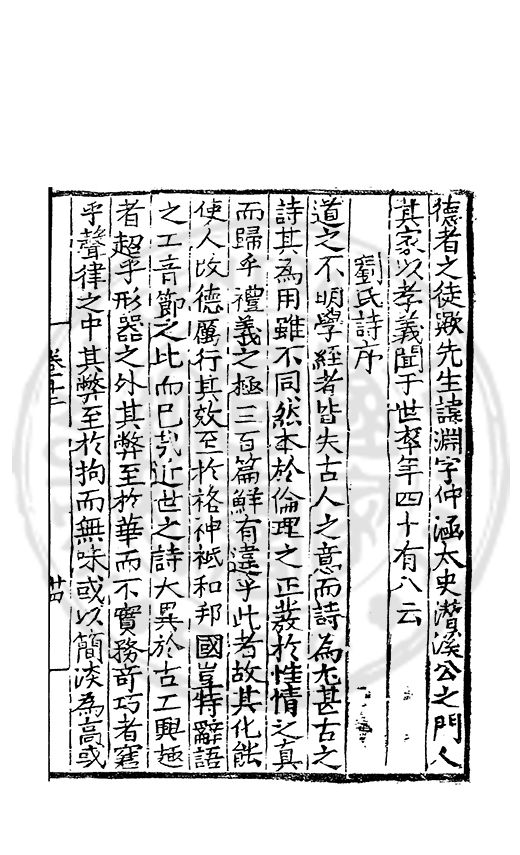 德者之徒歟先生諱淵字仲涵太史潛溪公之門人
其家以孝義聞于世卒年四十有八云
劉氏詩序
道之不明學經者皆失古人之意而詩為尤甚古之
詩其為用雖不同然本於倫理之正發於性情之真
而歸乎禮義之極三百篇鮮有違乎此者故其化能
使人改德厲行其效至於格神祇和邦國豈特辭語
之工音節之比而已哉近世之詩大異於古工興趣
者超乎形器之外其弊至於華而不實務奇巧者窘
乎聲律之中其弊至於拘而無味或以簡淡為高或
卷十二
廿四